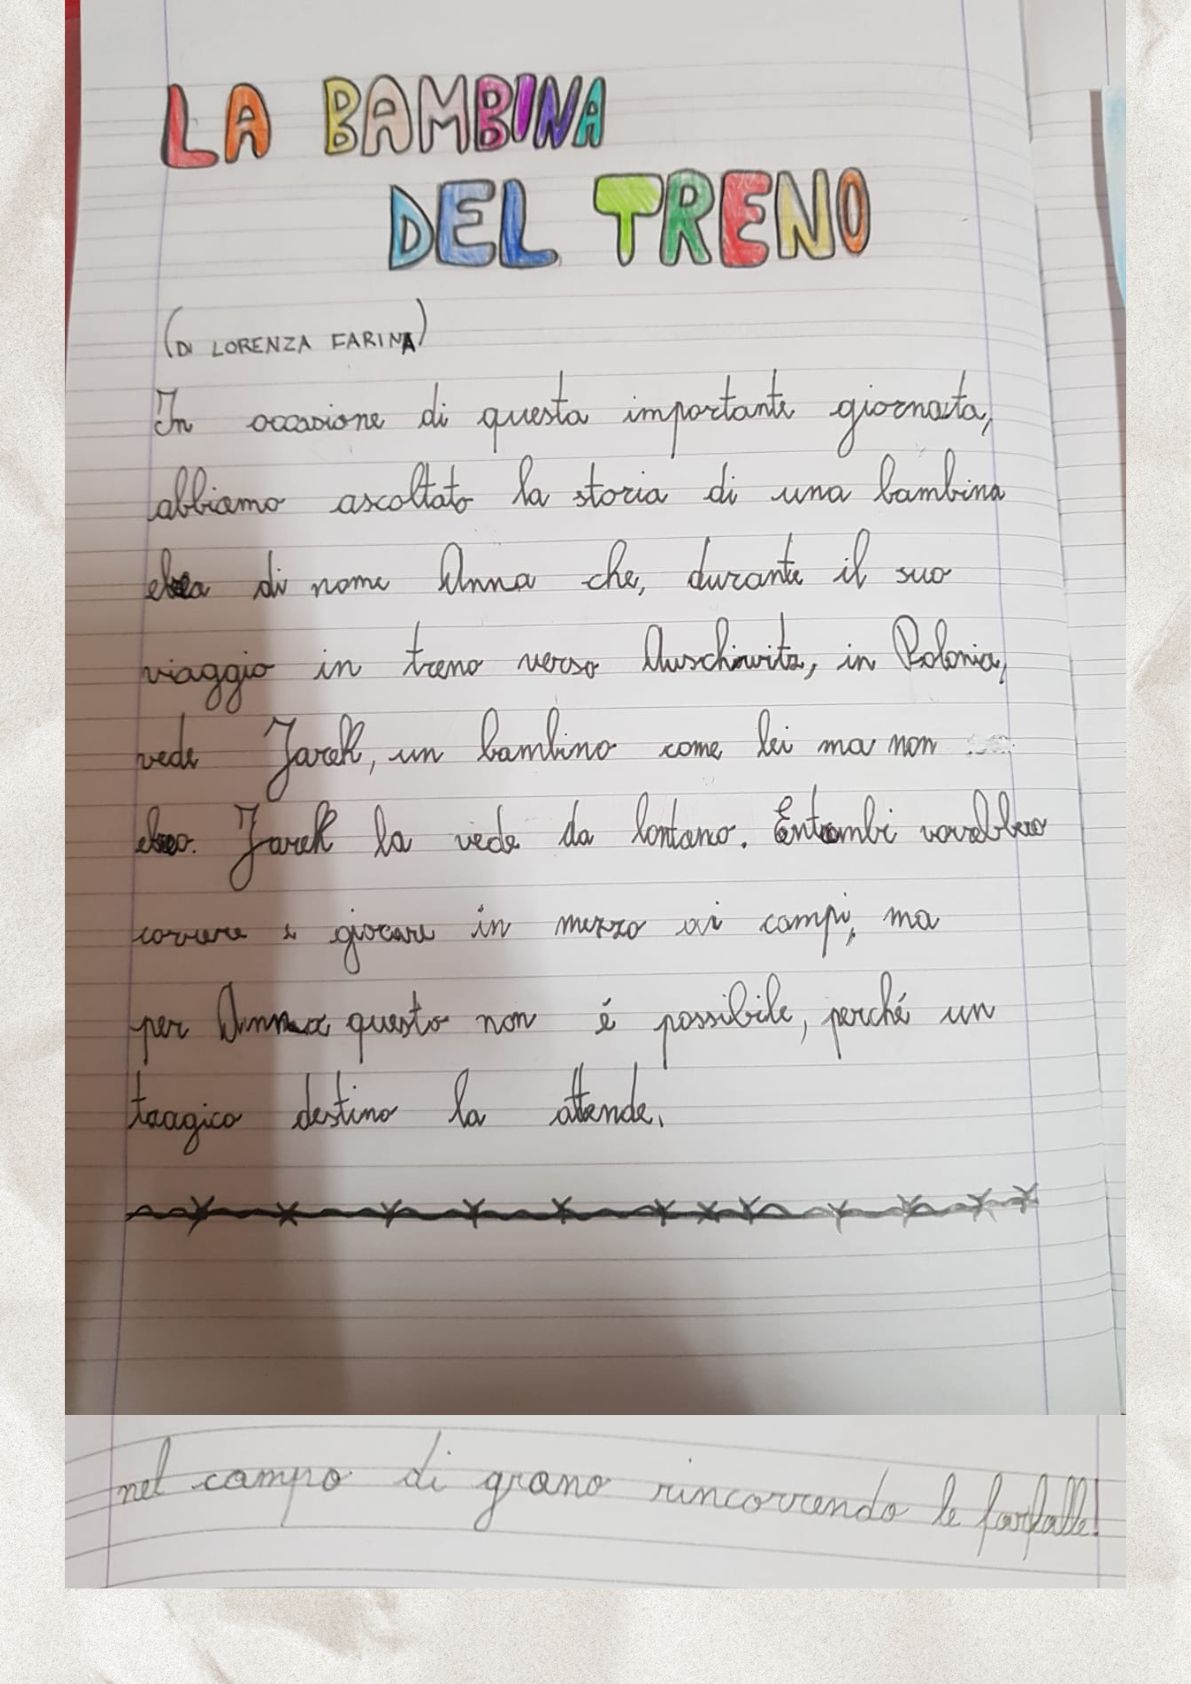 LA BAMBINA
DEL TRENO
(DI LORENZA FARINA)
In occasione di questa importante giornata,
abbiamo ascoltato la storia di una bambina
ebrea di nome Anna che, durante il suo
viaggio in treno verso Auschiwitz, in Polonia,
vede Jarek, un bambino come lei ma non
ebreo. Jarek la vede da lontano. Entrambi vorrebbero
correre e giocare in mezzo ai campi, ma
per Anna questo non é possibile, perché un
tragico destino la attende.
nel campo di grano rincorrendo le farfalle!